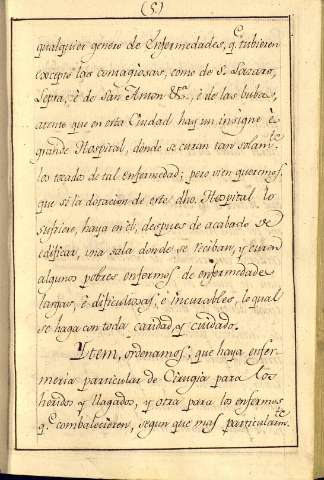 (5)
qualquier genero de Enfermedades, q.e tubieren
excepto las contagiosas, como de Sn. Lazaro,
Lepra, è de San Anton &a., è de las bubas,
atento que en esta Ciudad hay un insigne è
grande Hospital, donde se curan tan solam.te
los tocados de tal Enfermedad; pero bien queremos,
que si la dotacion de este dho. Hospital lo
sufriere, haya en èl, despues de acabado de
edificar, una sala donde se reciban, y curen
algunos pobres enfermos de enfermedades
largas, è dificultosas, è incurables, lo qual
se haga con toda caridad, y cuidado.
Ytem, ordenamos; que haya enfer-
meria particular de Cirugia para los
heridos y llagados, y otra para los enfermos
q.e combalecieren, segun que mas particularm.te